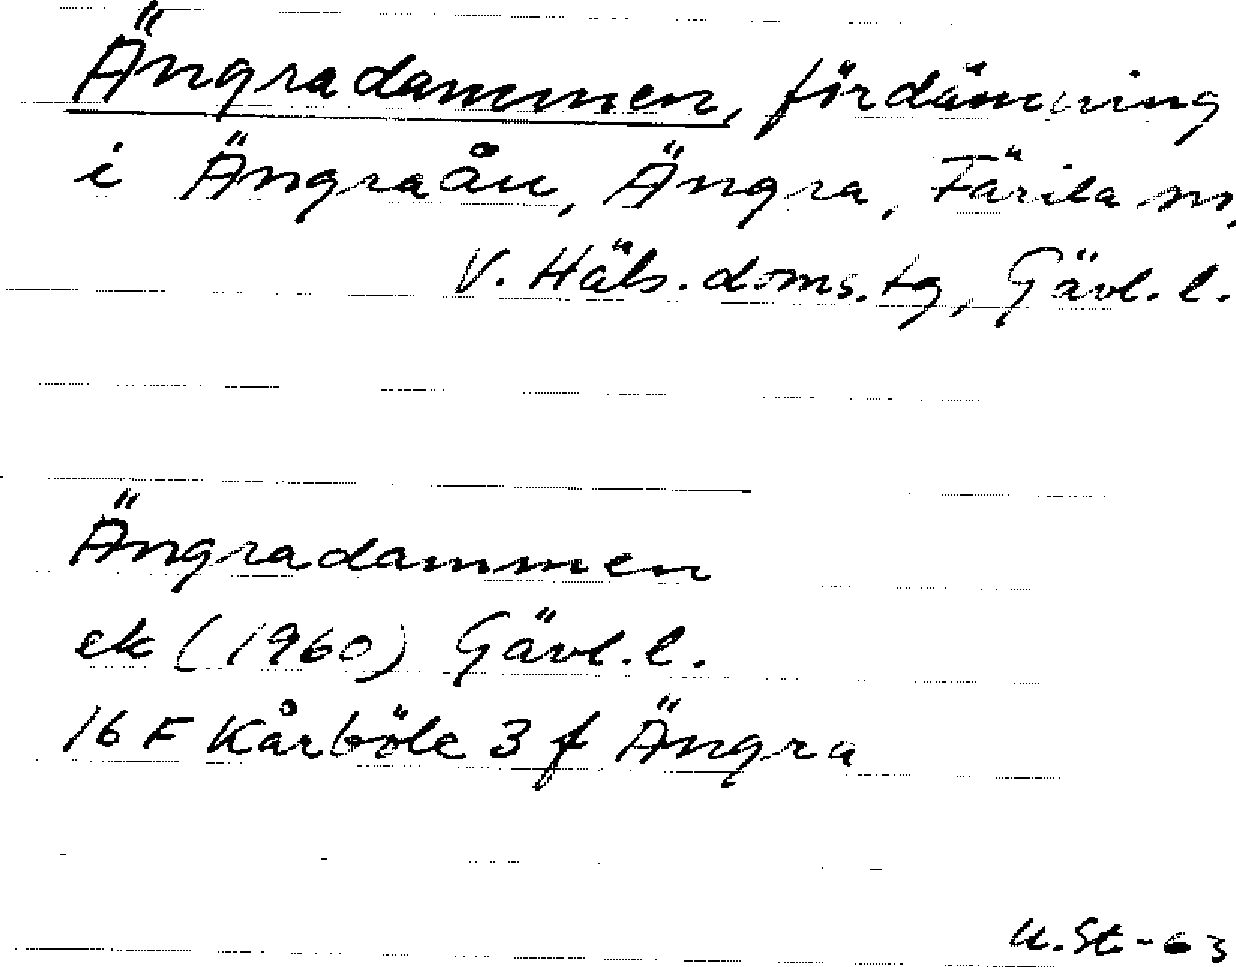 Ängradammen, fördämning
i Ängraån, Ängra, Färila sn,
V. Häls. doms. tg, Gävl. l.
Ängradammen
ek (1960) Gävl. l.
16 F Kårböle 3 f Ängra
U. St-63